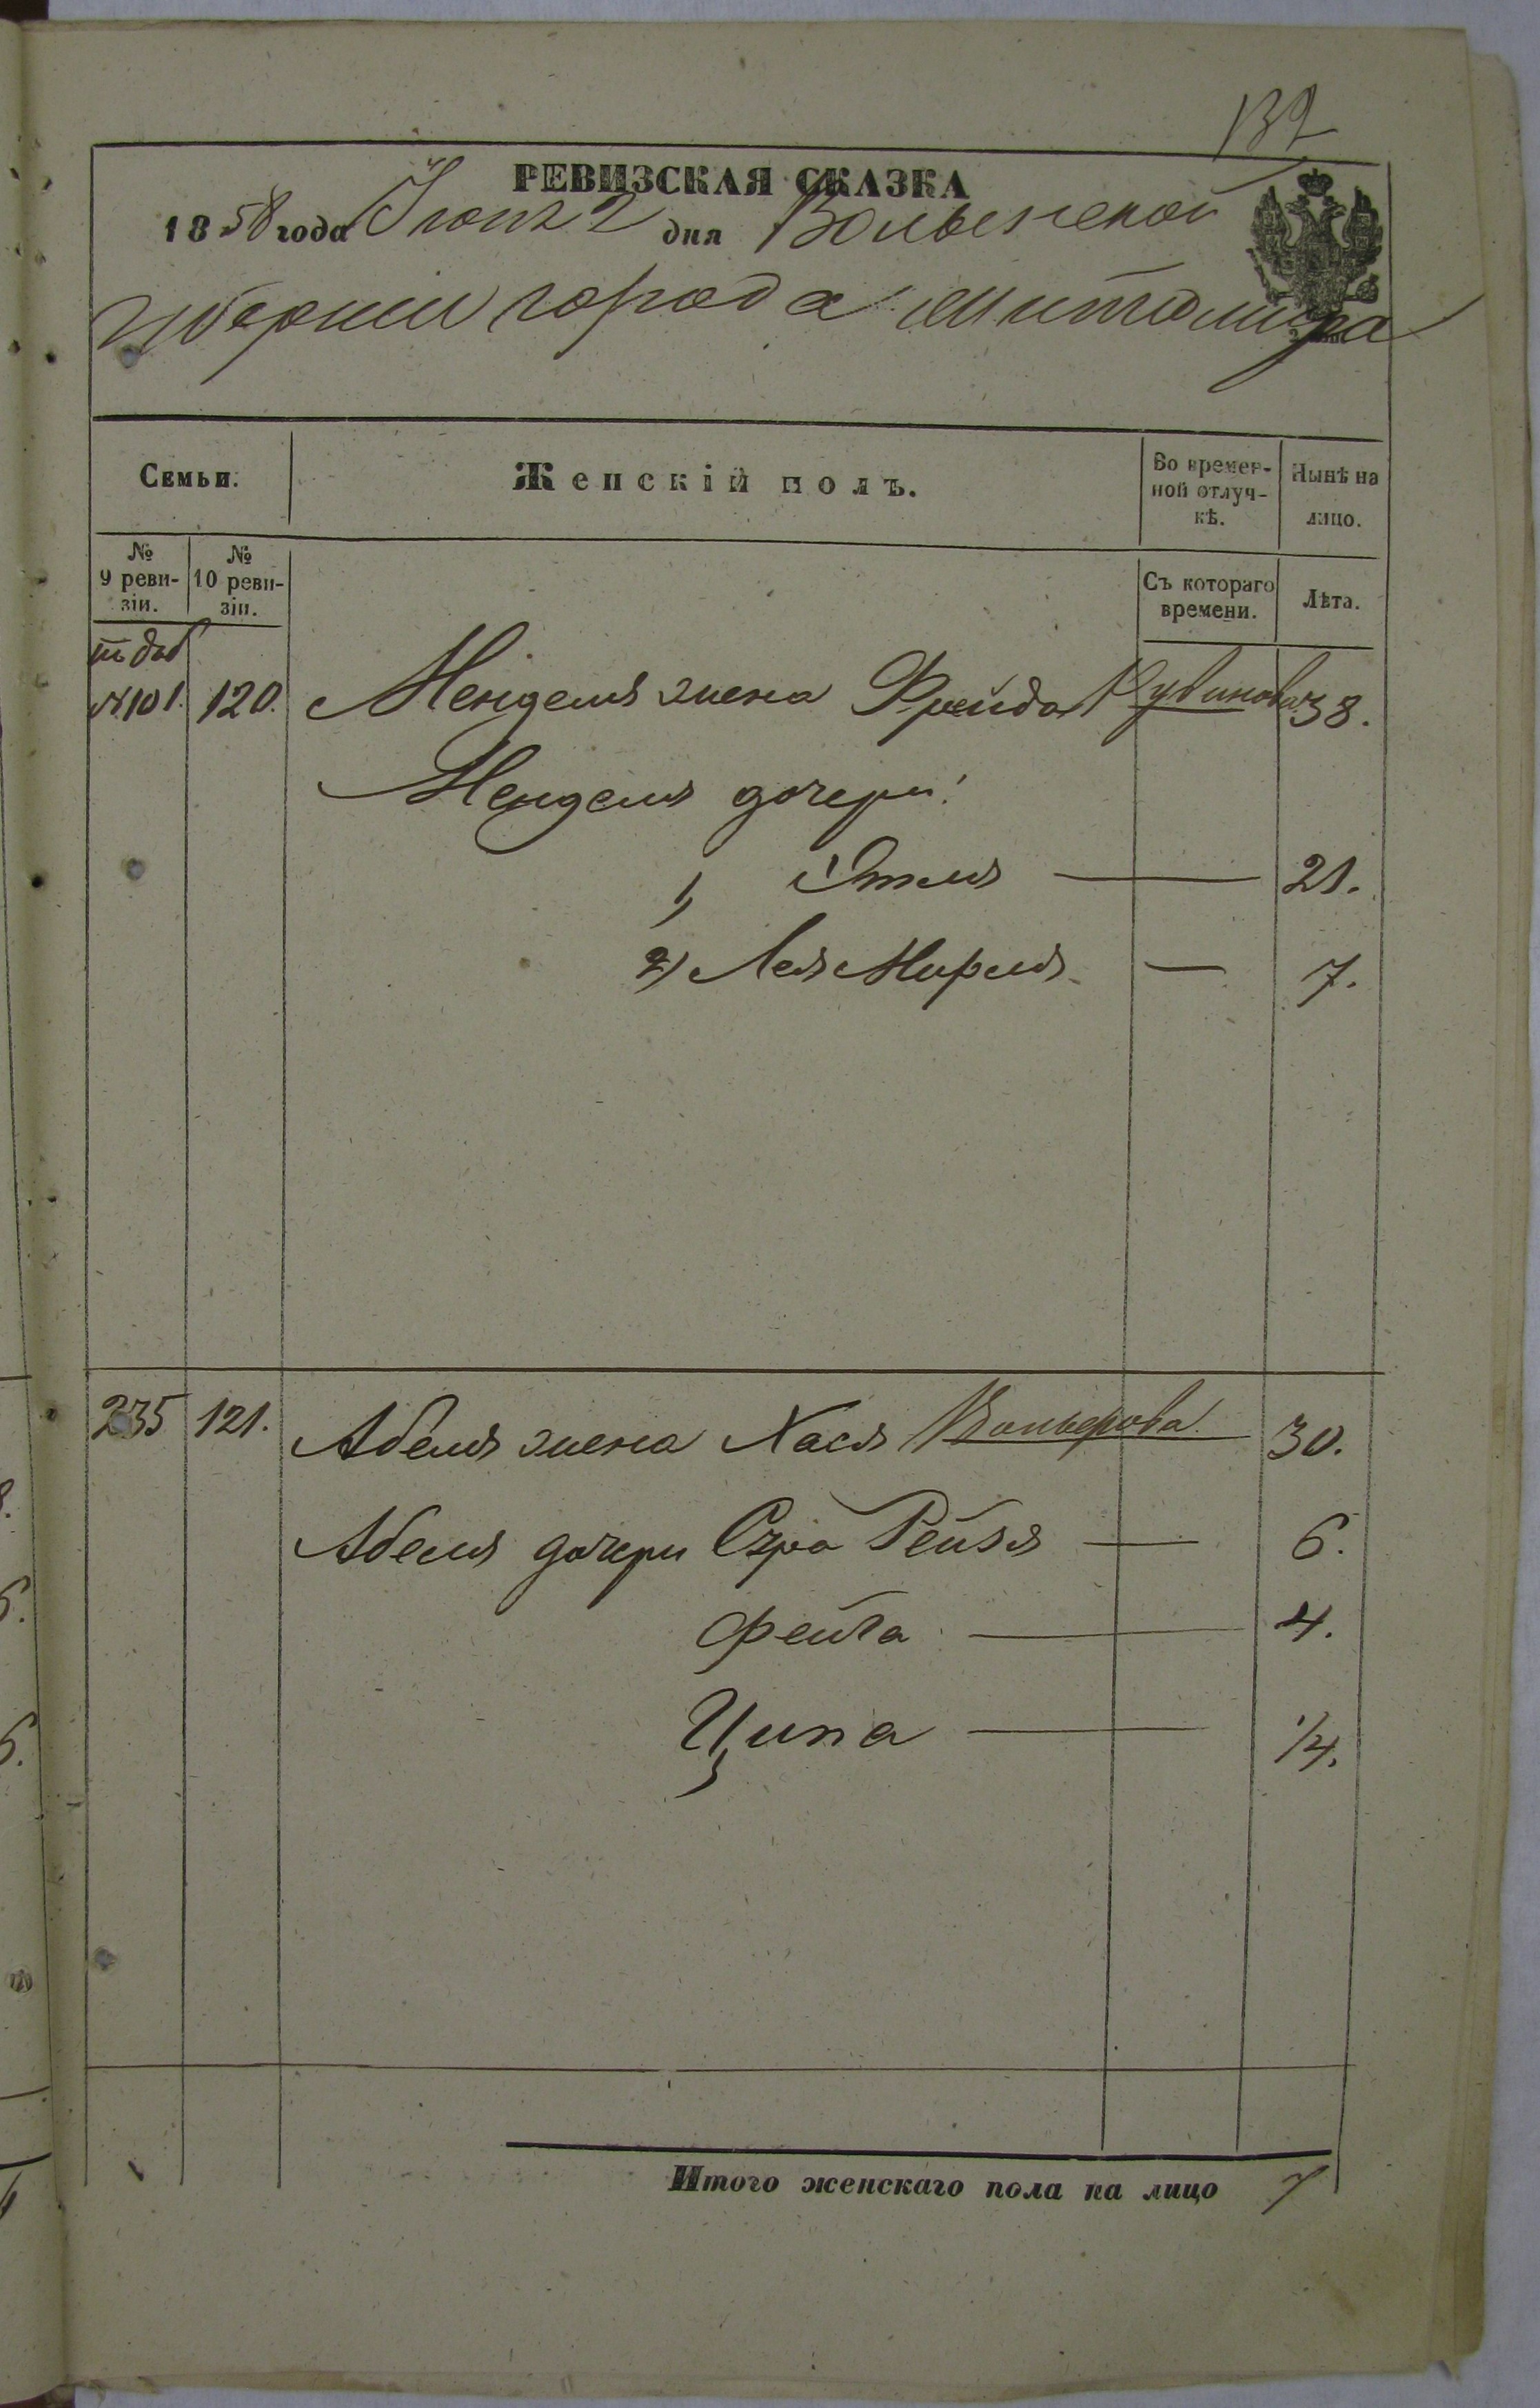 132
РЕВИЗСКАЯ СКАЗКА
1858 года Июня 2 дня Волынской
губернии города Житомира
Семьи.
Женскій полъ.
Во времен-
ной отлуч-
кѣ.
Нынѣ на
лицо.
№
9 реви-
зіи.
№
10 реви-
зіи.
Съ котораго
времени.
Лѣта.
№ 101. 120. Менделя жена Фрейда Рувинова 38.
Менделя дочери:
1, Этля — 21.
2) Лея Мирля — 7.
235 121. Абеля жена Хася 30.
Абеля дочери Сура Рейзя — 6.
Фейга — 4.
Ципа — 1/4.
Итого женскаго пола на лицо 7